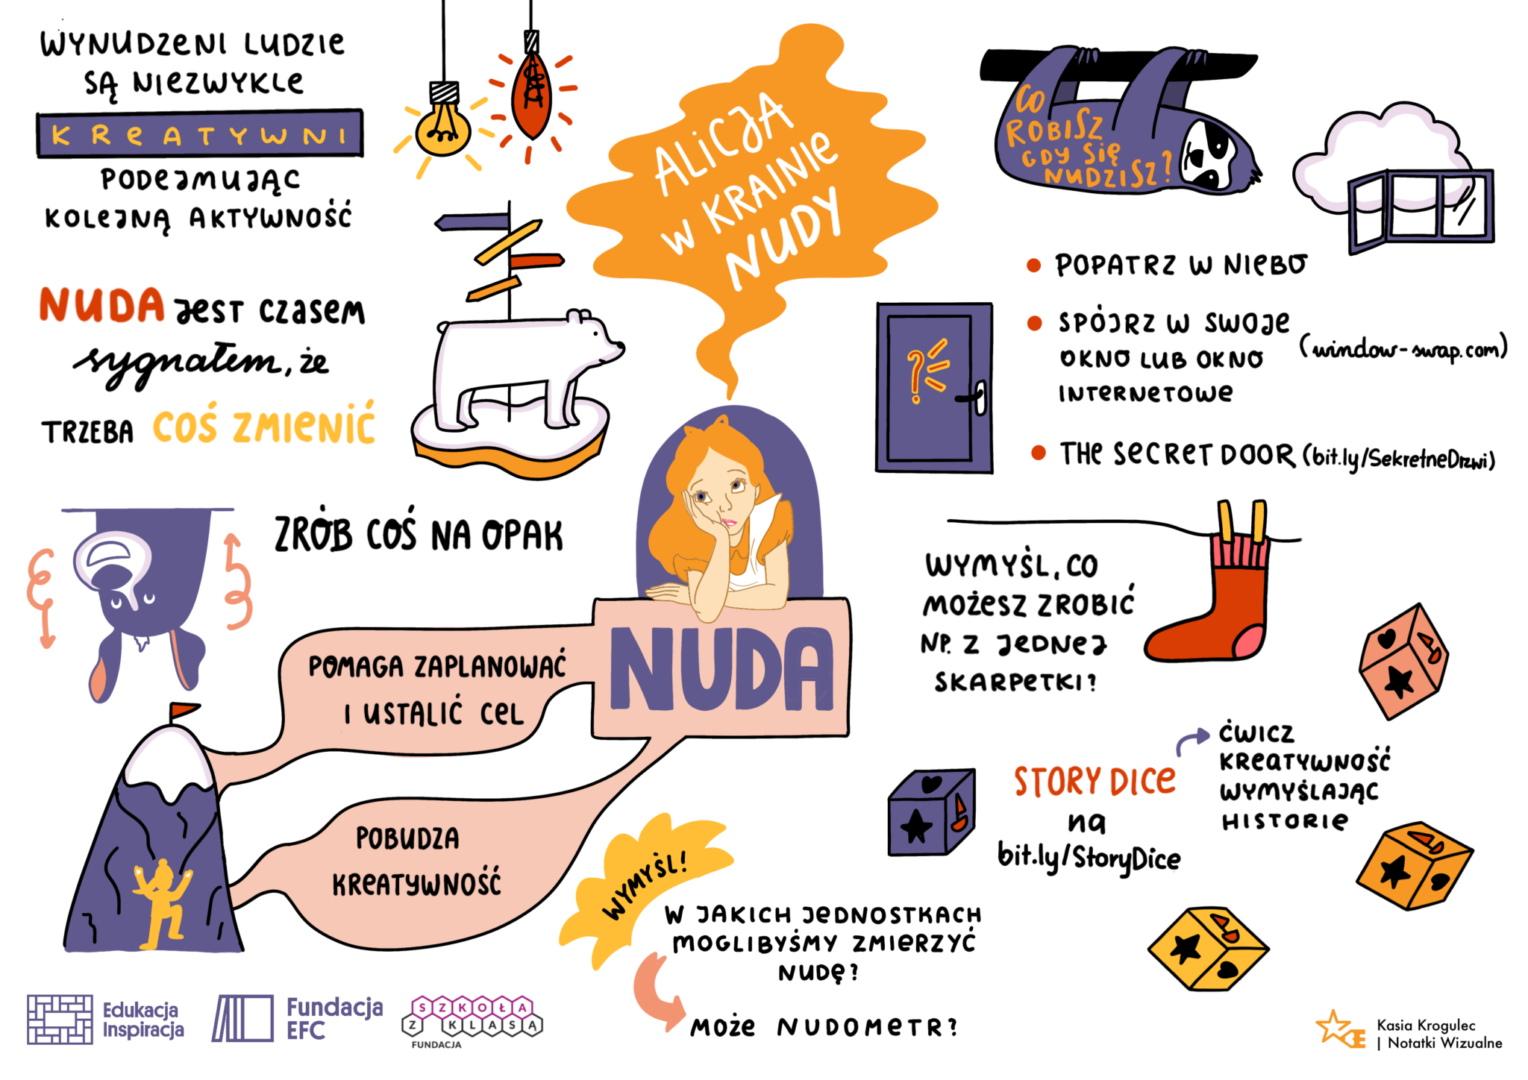 WYNUDZENI LUDZIE
SĄ NIEZWYKLE
KREATYWNI
PODEJMUJĄC
KOLEJNĄ AKTYWNOŚĆ
NUDA JEST CZASEM
sygnałem, że
TRZEBA COŚ ZMIENIĆ
ZRÓB COŚ NA OPAK
ALICJA
W KRAINIE
NUDY
NUDA
POMAGA ZAPLANOWAĆ
I USTALIĆ CEL
POBUDZA
KREATYWNOŚĆ
CO
ROBISZ
GDY SIĘ
NUDZISZ?
POPATRZ W NIEBO
SPÓJRZ W SWOJE
OKNO LUB OKNO
INTERNETOWE
(window-swap.com)
?
THE SECRET DOOR (bit.ly/SekretneDrzwi)
WYMYŚL, CO
MOŻESZ ZROBIĆ
NP. Z JEDNEJ
SKARPETKI?
STORY DICE
na
bit.ly/StoryDice
ĆWICZ
KREATYWNOŚĆ
WYMYŚLAJĄC
HISTORIE
WYMYŚL!
W JAKICH JEDNOSTKACH
MOGLIBYŚMY ZMIERZYĆ
NUDĘ?
MOŻE NUDOMETR?
Edukacja
Inspiracja
Fundacja
EFC
SZKOŁA
Z KLASĄ
FUNDACJA
Kasia Krogulec
| Notatki Wizualne